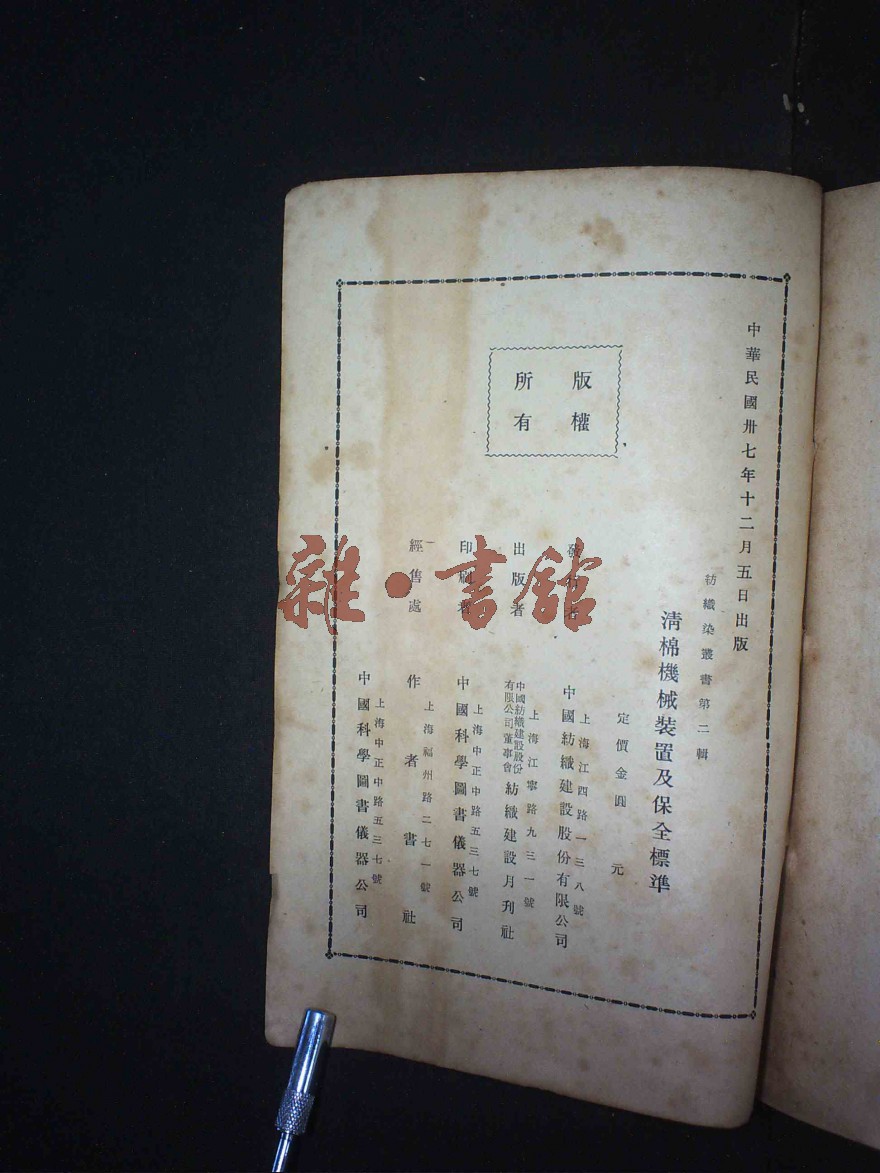 中華民國卅七年十二月五日出版
紡織染叢書第二輯
清棉機械裝置及保全標準
版權
所有
定價金圓 元
發行者
上海江四路一三八號
中國紡織建設股份有限公司
出版者
上海江寧路九三一號
中國紡織建設股份有限公司董事會 紡織建設月刊社
印刷者
上海中正中路五三七號
中國科學圖書儀器公司
經售處
上海福州路二七一號
作者書社
上海中正中路五三七號
中國科學圖書儀器公司
雜·書館